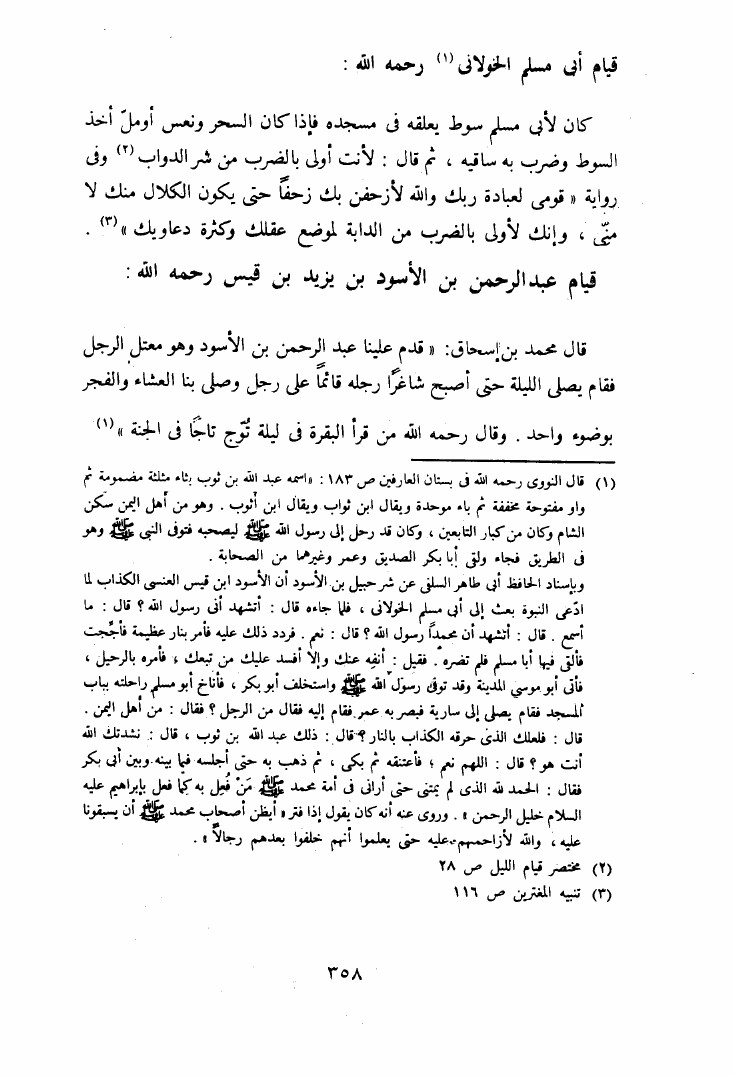 قيام أبى مسلم الخولانى (١) رحمه الله :
كان لأبى مسلم سوط يعلقه فى مسجده فإذا كان السحر ونعس أو ملّ أخذ
السوط وضرب به ساقيه ، ثم قال : لأنت أولى بالضرب من شر الدواب (٢) وفى
رواية « قومى لعبادة ربك والله لأزحفن بك زحفاً حتى يكون الكلال منك لا
منّى ، وإنك لأولى بالضرب من الدابة لموضع عقلك وكثرة دعاويك » (٣) .
قيام عبد الرحمن بن الأسود بن يزيد بن قيس رحمه الله :
قال محمد بن إسحاق: « قدم علينا عبد الرحمن بن الأسود وهو معتل الرجل
فقام يصلى الليلة حتى أصبح شاغرًا رجله قائمًا على رجل وصلى بنا العشاء والفجر
بوضوء واحد . وقال رحمه الله من قرأ البقرة فى ليلة تُوّج تاجًا فى الجنة » (١)
(١) قال النووى رحمه الله فى بستان العارفين ص ١٨٣ : «اسمه عبد الله بن ثوب بثاء مثلثة مضمومة ثم
واو مفتوحة مخففة ثم باء موحدة ويقال ابن ثواب ويقال ابن أثوب . وهو من أهل اليمن سكن
الشام وكان من كبار التابعين ، وكان قد رحل إلى رسول الله ﷺ ليصحبه فتوفى النبى ﷺ وهو
فى الطريق فجاء ولقى أبا بكر الصديق وعمر وغيرهما من الصحابة .
وبإسناد الحافظ أبى طاهر السلفى عن شرحبيل بن الأسود أن الأسود ابن قيس العنسى الكذاب لما
ادّعى النبوة بعث إلى أبى مسلم الخولانى ، فلما جاءه قال : أتشهد أنى رسول الله ؟ قال : ما
أسمع . قال : أتشهد أن محمداً رسول الله ؟ قال : نعم . فردد ذلك عليه فأمر بنار عظيمة فأججت
فألقى فيها أبا مسلم فلم تضره . فقيل : أنفه عنك وإلا أفسد عليك من تبعك ، فأمره بالرحيل ،
فأتى أبو موسى المدينة وقد توفى رسول الله ﷺ واستخلف أبو بكر ، فأناخ أبو مسلم راحلته بباب
المسجد فقام يصلى إلى سارية فبصر به عمر فقام إليه فقال من الرجل ؟ فقال : من أهل اليمن .
قال : فلعلك الذى حرقه الكذاب بالنار ؟ قال : ذلك عبد الله بن ثوب ، قال : نشدتك الله
أنت هو ؟ قال : اللهم نعم ؛ فأعتنقه ثم بكى ، ثم ذهب به حتى أجلسه فيما بينه وبين أبى بكر
فقال : الحمد لله الذى لم يمتنى حتى أرانى فى أمة محمد ﷺ مَنْ فُعِل به كما فعل بإبراهيم عليه
السلام خليل الرحمن » . وروى عنه أنه كان يقول إذا فتر « أيظن أصحاب محمد ﷺ أن يسبقونا
عليه ، والله لأزاحمهم عليه حتى يعلموا أنهم خلفوا بعدهم رجالاً » .
(٢) مختصر قيام الليل ص ٢٨
(٣) تنبيه المغترين ص ١١٦
٣٥٨